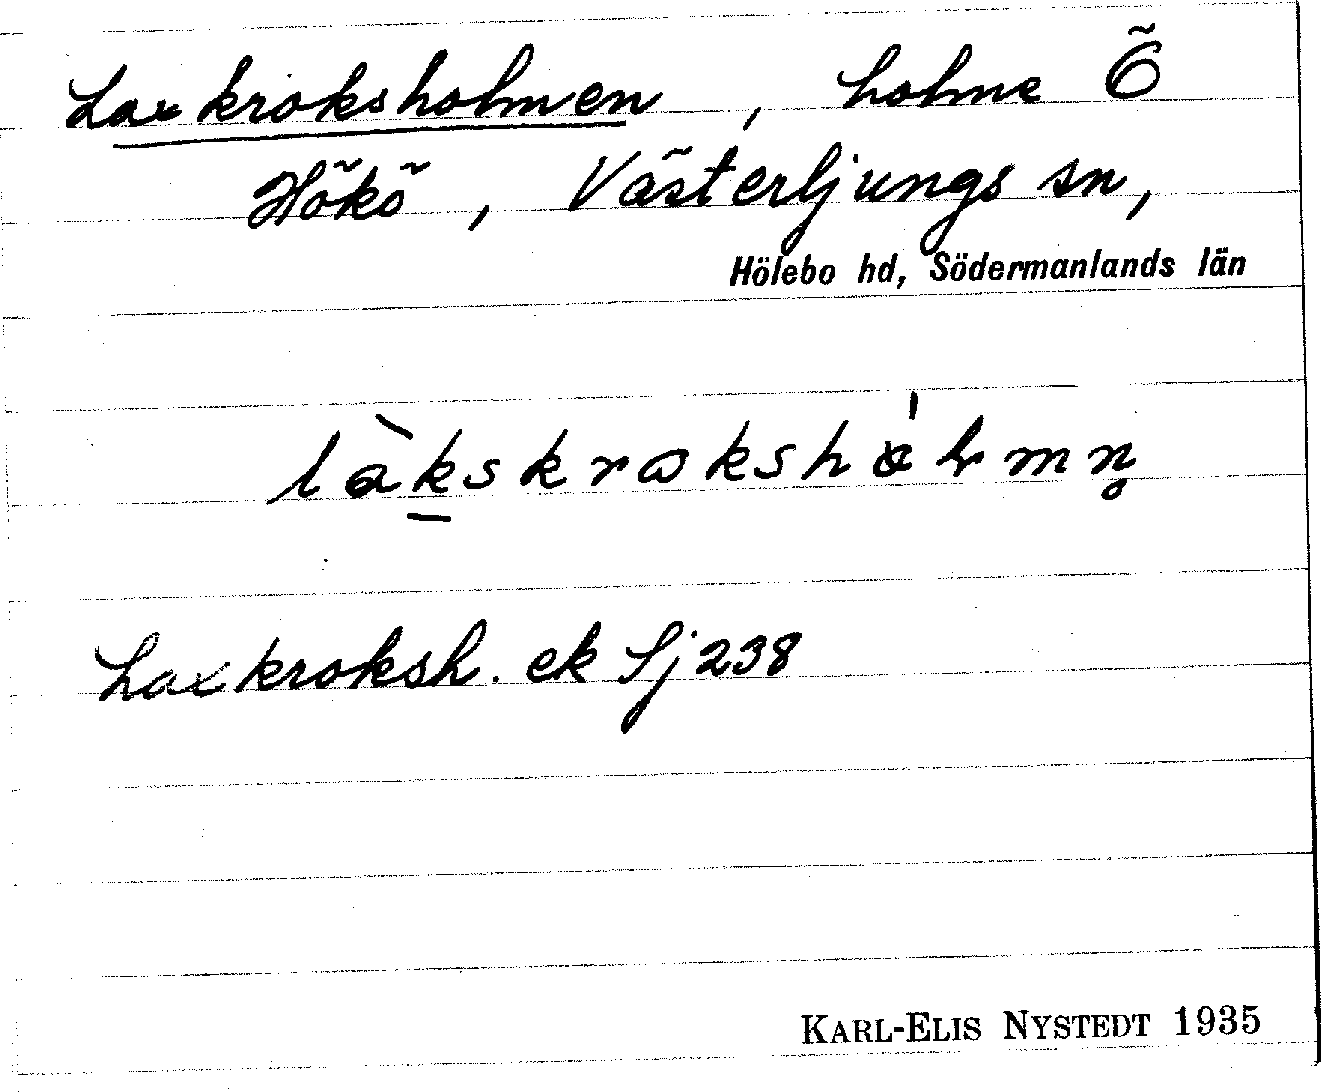 Laxkroksholmen, holme Ö
Hökö, Västerljungs sn,
Hölebo hd, Södermanlands län
làkskrokshólmn̥
Laxkroksh. ek Sj 238
KARL-ELIS NYSTEDT 1935